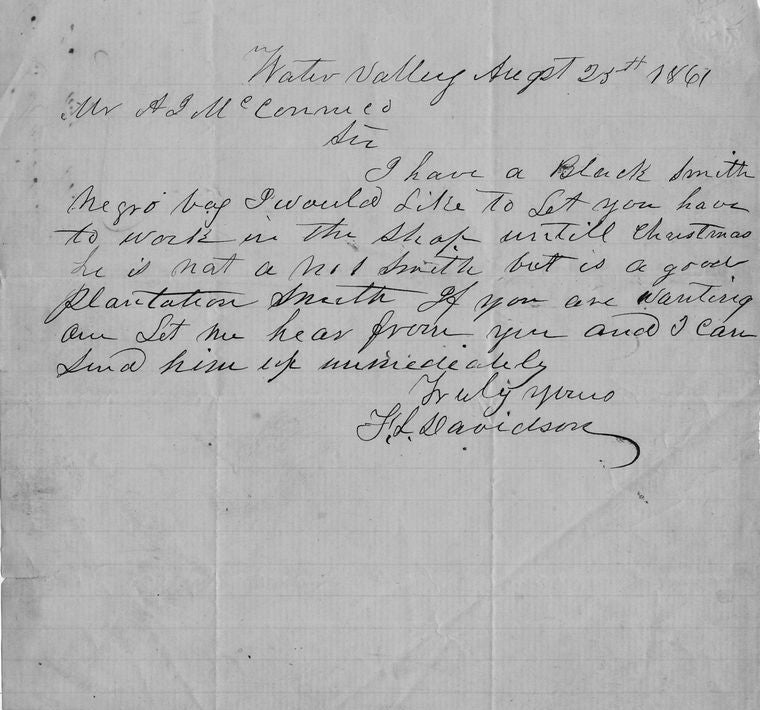 Water Valley Augst 25th 1861
Mr A J McConnico
Sir
I have a Black Smith
negro boy I would Like to Let you have
to work in the Shop untill Christmas
he is not a no 1 Smith but is a good
Plantation Smith If you are wanting
one Let me hear from you and I can
Send him up immediately
Truly yours
F. L. Davidson